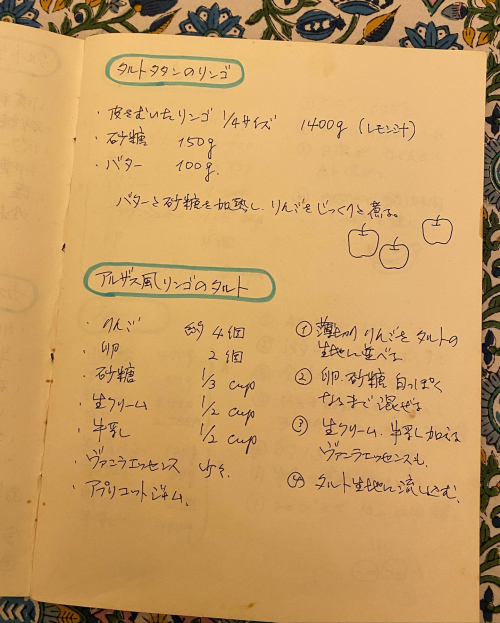 タルトタタンのリンゴ
・皮をむいたリンゴ 1/4サイズ 1400g (レモン汁)
・砂糖 150g
・バター 100g.
バターと砂糖を加熱し、りんごをじっくりと煮る。
アルザス風リンゴのタルト
・りんご 4個
・卵 2個
・砂糖 1/3 cup
・生クリーム 1/2 cup
・牛乳 1/2 cup
・ヴァニラエッセンス 少々.
・アプリコットジャム.
① 薄切りりんごをタルトの
生地に並べる
② 卵.砂糖 白っぽく
なるまで混ぜる
③ 生クリーム.牛乳加える
ヴァニラエッセンスも.
④ タルト生地に流し込む.